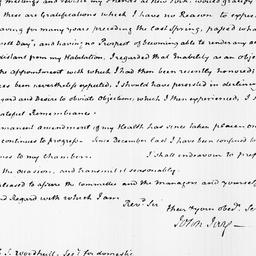 of meetings and revisit my Friends at New York. would greatly
these are Gratifications which I have no Reason to expe
Having for many years preceding the last Spring, passed what
well Days", and having no Prospect of becoming able to render any se
distant from my Habitation, I regarded that Inability as an objec
the appointment with which I had then been recently honored.
been nevertheless expected, I should have persisted in declinin
gard and Desire to obviate objections, which I then experienced, I s
grateful Remembrance.
manent amendment of my Health has since taken place. on
continues to progress. Since December last I have been confined to
ves to my chambers. I shall endeavour to prep
the occasion, and transmit it seasonably.
pleased to assure the committee and the Managers and yourself
and Regard with which I am
Revd. Sir
their & your obedt. Se
John Jay
S. S. Woodhull, Secy. for domestic